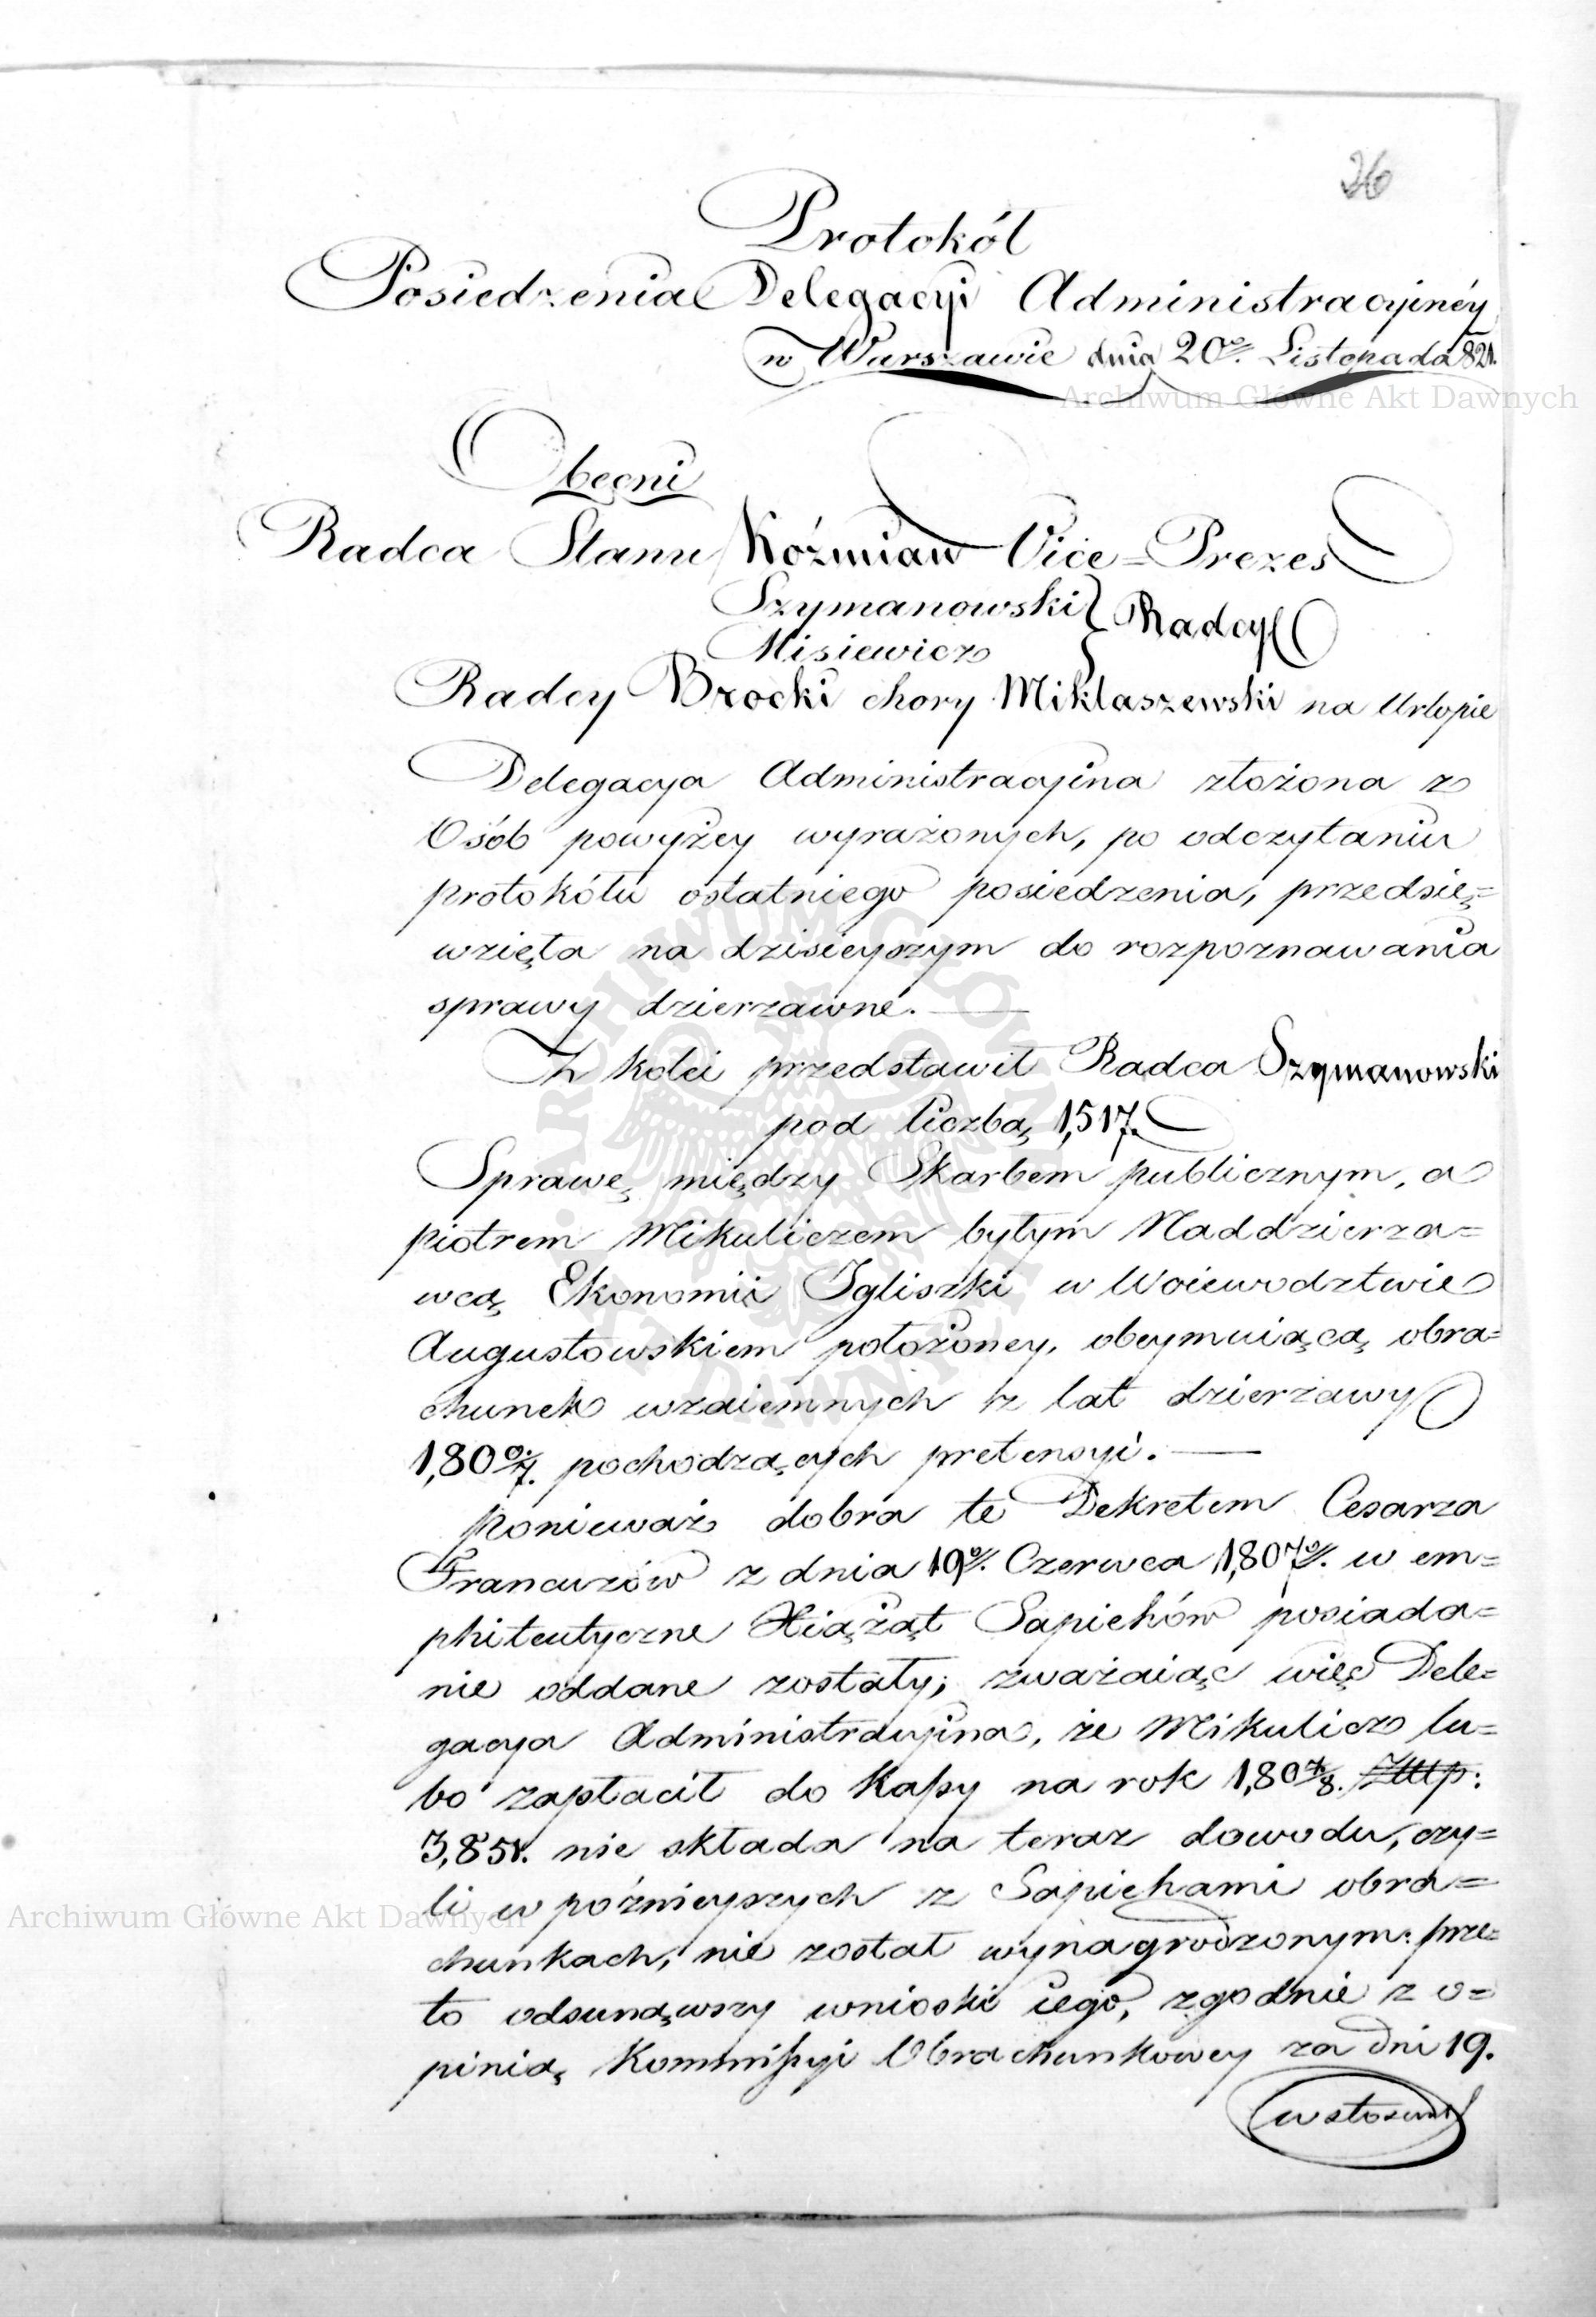 26
Protokół
Posiedzenia Delegacyi Administracyinéy
w Warszawie dnia 20º. Listopada 821.
Archiwum Główne Akt Dawnych
Obecni
Radca Stanu Koźmian Vice=Prezes
Szymanowski } Radcy
Misiewicz
Radcy Brocki chory Miklaszewski na Urlopie
Delegacya Administracyina złożona z
Osób powyżey wyrażonych, po odczytaniu
protokółu ostatniego posiedzenia, przedsię=
wzięła na dzisieyszym do rozpoznawania
sprawy dzierzawne. —
Z kolei przedstawił Radca Szymanowski
pod liczbą 1,517.
Sprawę między Skarbem publicznym, a
piotrem Mikuliczem byłym Naddzierza=
wcą Ekonomii Igliszki w Woiewodztwie
Augustowskiem położoney, obeymuiącą obra=
chunek wzaiemnych z lat dzierżawy
1,80 6/7. pochodzących pretensyi. —
Ponieważ dobra te Dekretem Cesarza
Francuzów z dnia 19º. Czerwca 1,807º. w em=
phiteutyczne Xiążąt Sapiehów posiada=
nie oddane zostały; zważaiąc więc Dele=
gacya Administracyina, że Mikulicz lu=
bo zapłacił do Kassy na rok 1,80 7/8. Złłp:
3,851. nie składa na teraz dowodu, czy=
li w późnieyszych z Sapiehami obra=
chunkach, nie został wynagrodzonym: prze=
to odsunąwszy wnioski iego, zgodnie z o=
pinią Kommissyi Obrachunkowey za dni 19.
w stosun
Archiwum Główne Akt Dawnych
ARCHIWUM GŁÓWNE AKT DAWNYCH